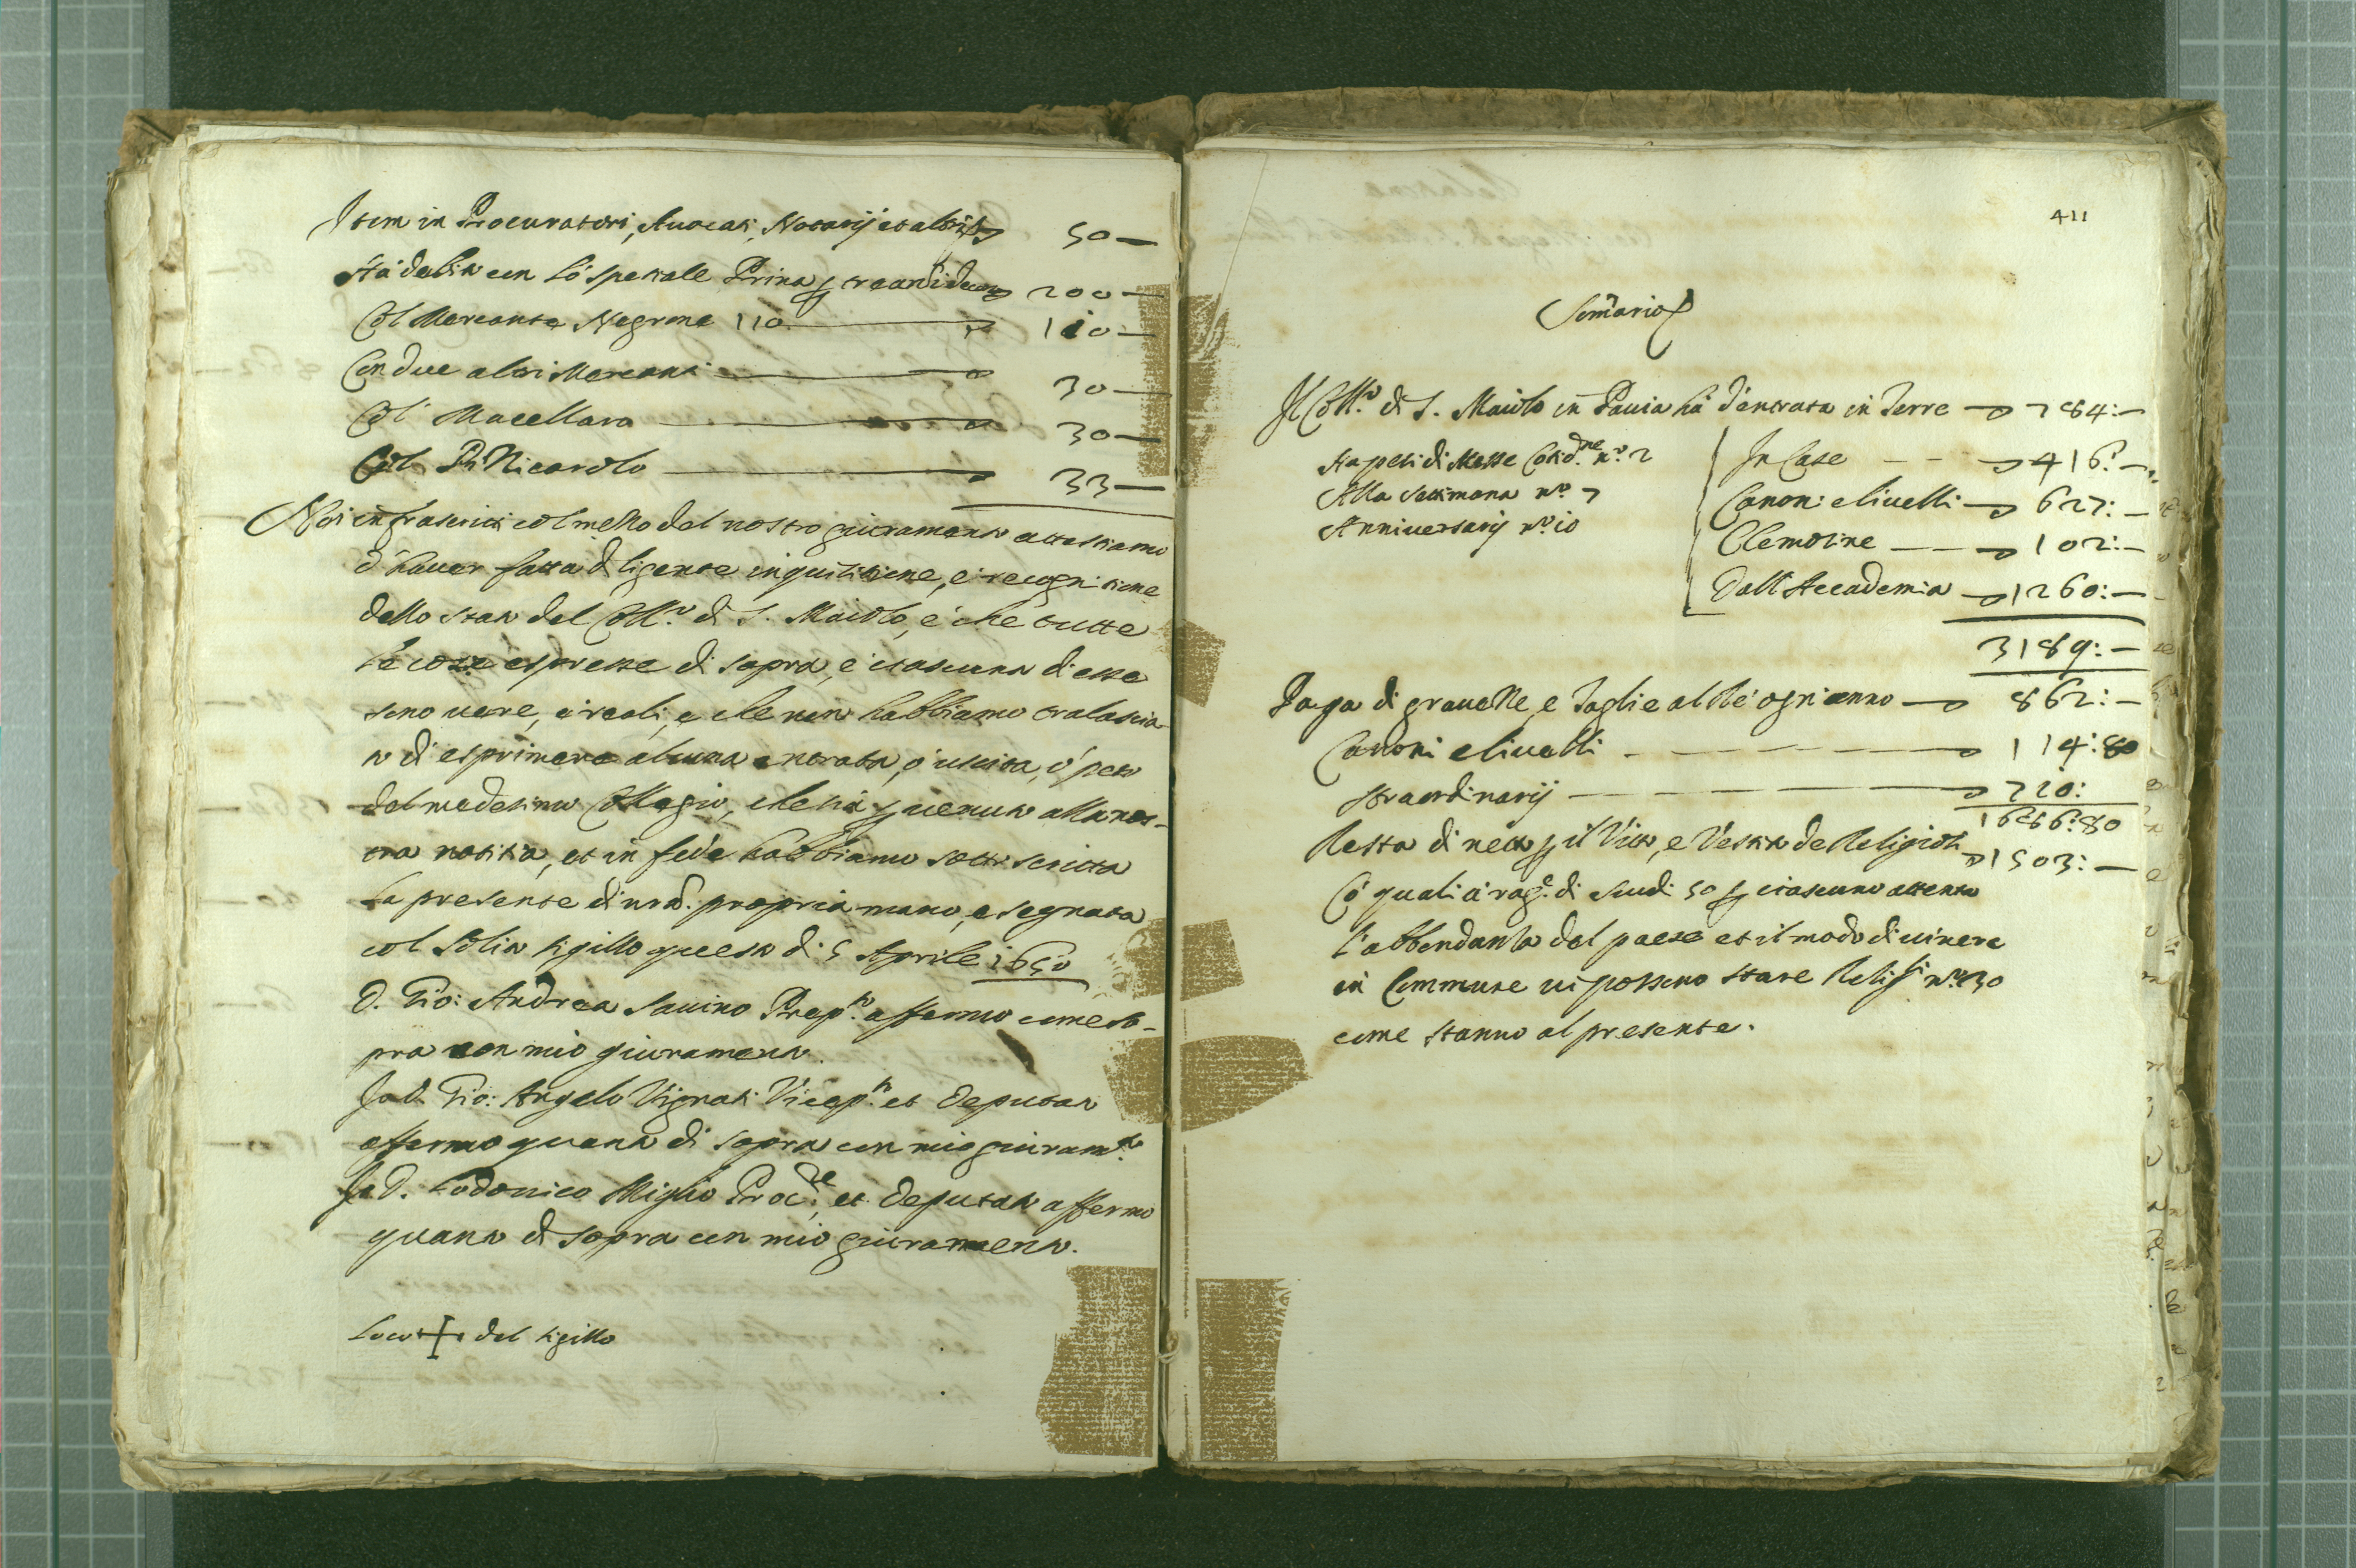 Item in Procuratori, Auocati, Notarij et altri 50 —
Hà debito con lo spetiale Prina 200 —
Col Mercante Negrone 110 — 110 —
Con due altri Mercanti — 30 —
Col Macellaro — 30 —
Col Nicarolo — 33 —
Noi infrascritti col mezzo del nostro giuramento attestiamo
d'hauer fatta diligente inquisitione, e recognitione
dello stato del Coll.º di S. Maiolo, e che tutte
le cose espresse di sopra, e ciascuna di esse
sono uere, e reali, e che non habbiamo tralascia-
to di esprimere alcuna entrata, ò uscita, ò peso
del medesimo Collegio, che sia peruenuto alla nos-
tra notitia, et in fede habbiamo sottoscritta
la presente di nrã. propria mano, e segnata
col solito sigillo questo di 5 Aprile 1650
D. Gio: Andrea Sauino Prep.to affermo come so-
pra con mio giuramento.
Io D. Gio: Angelo Vignati Vicep.to et deputato
affermo quanto di sopra con mio giuram.to
Io D. Lodouico Miglio Proc.re et deputato affermo
quanto di sopra con mio giuramento.
Loco + del sigillo
411
Somario
Il Coll.º di S. Maiolo in Pauia hà d'entrata in Terre — 784: —
Ha pesi di Messe Cotid.ne nº. 2
Alla settimana nº 7
Anniuersarij nº 10
In Case — 416: —
Canoni e liuelli — 627: —
Elemosine — 102: —
Dall'Accademia — 1260: —
3189: —
Paga di grauezze e Taglie al Rè ogni anno — 862: —
Canoni e liuelli — 114: 80
straordinarij — 710:
1686: 80
Resta di netto per il Vitto, e Vestito de Religiosi — 1503: —
Co' quali à rag.e di scudi 50 per ciascuno attento
l'abbondanza del paese et il modo di uiuere
in Commune ui possono stare Relig.si nº 30
come stanno al presente.